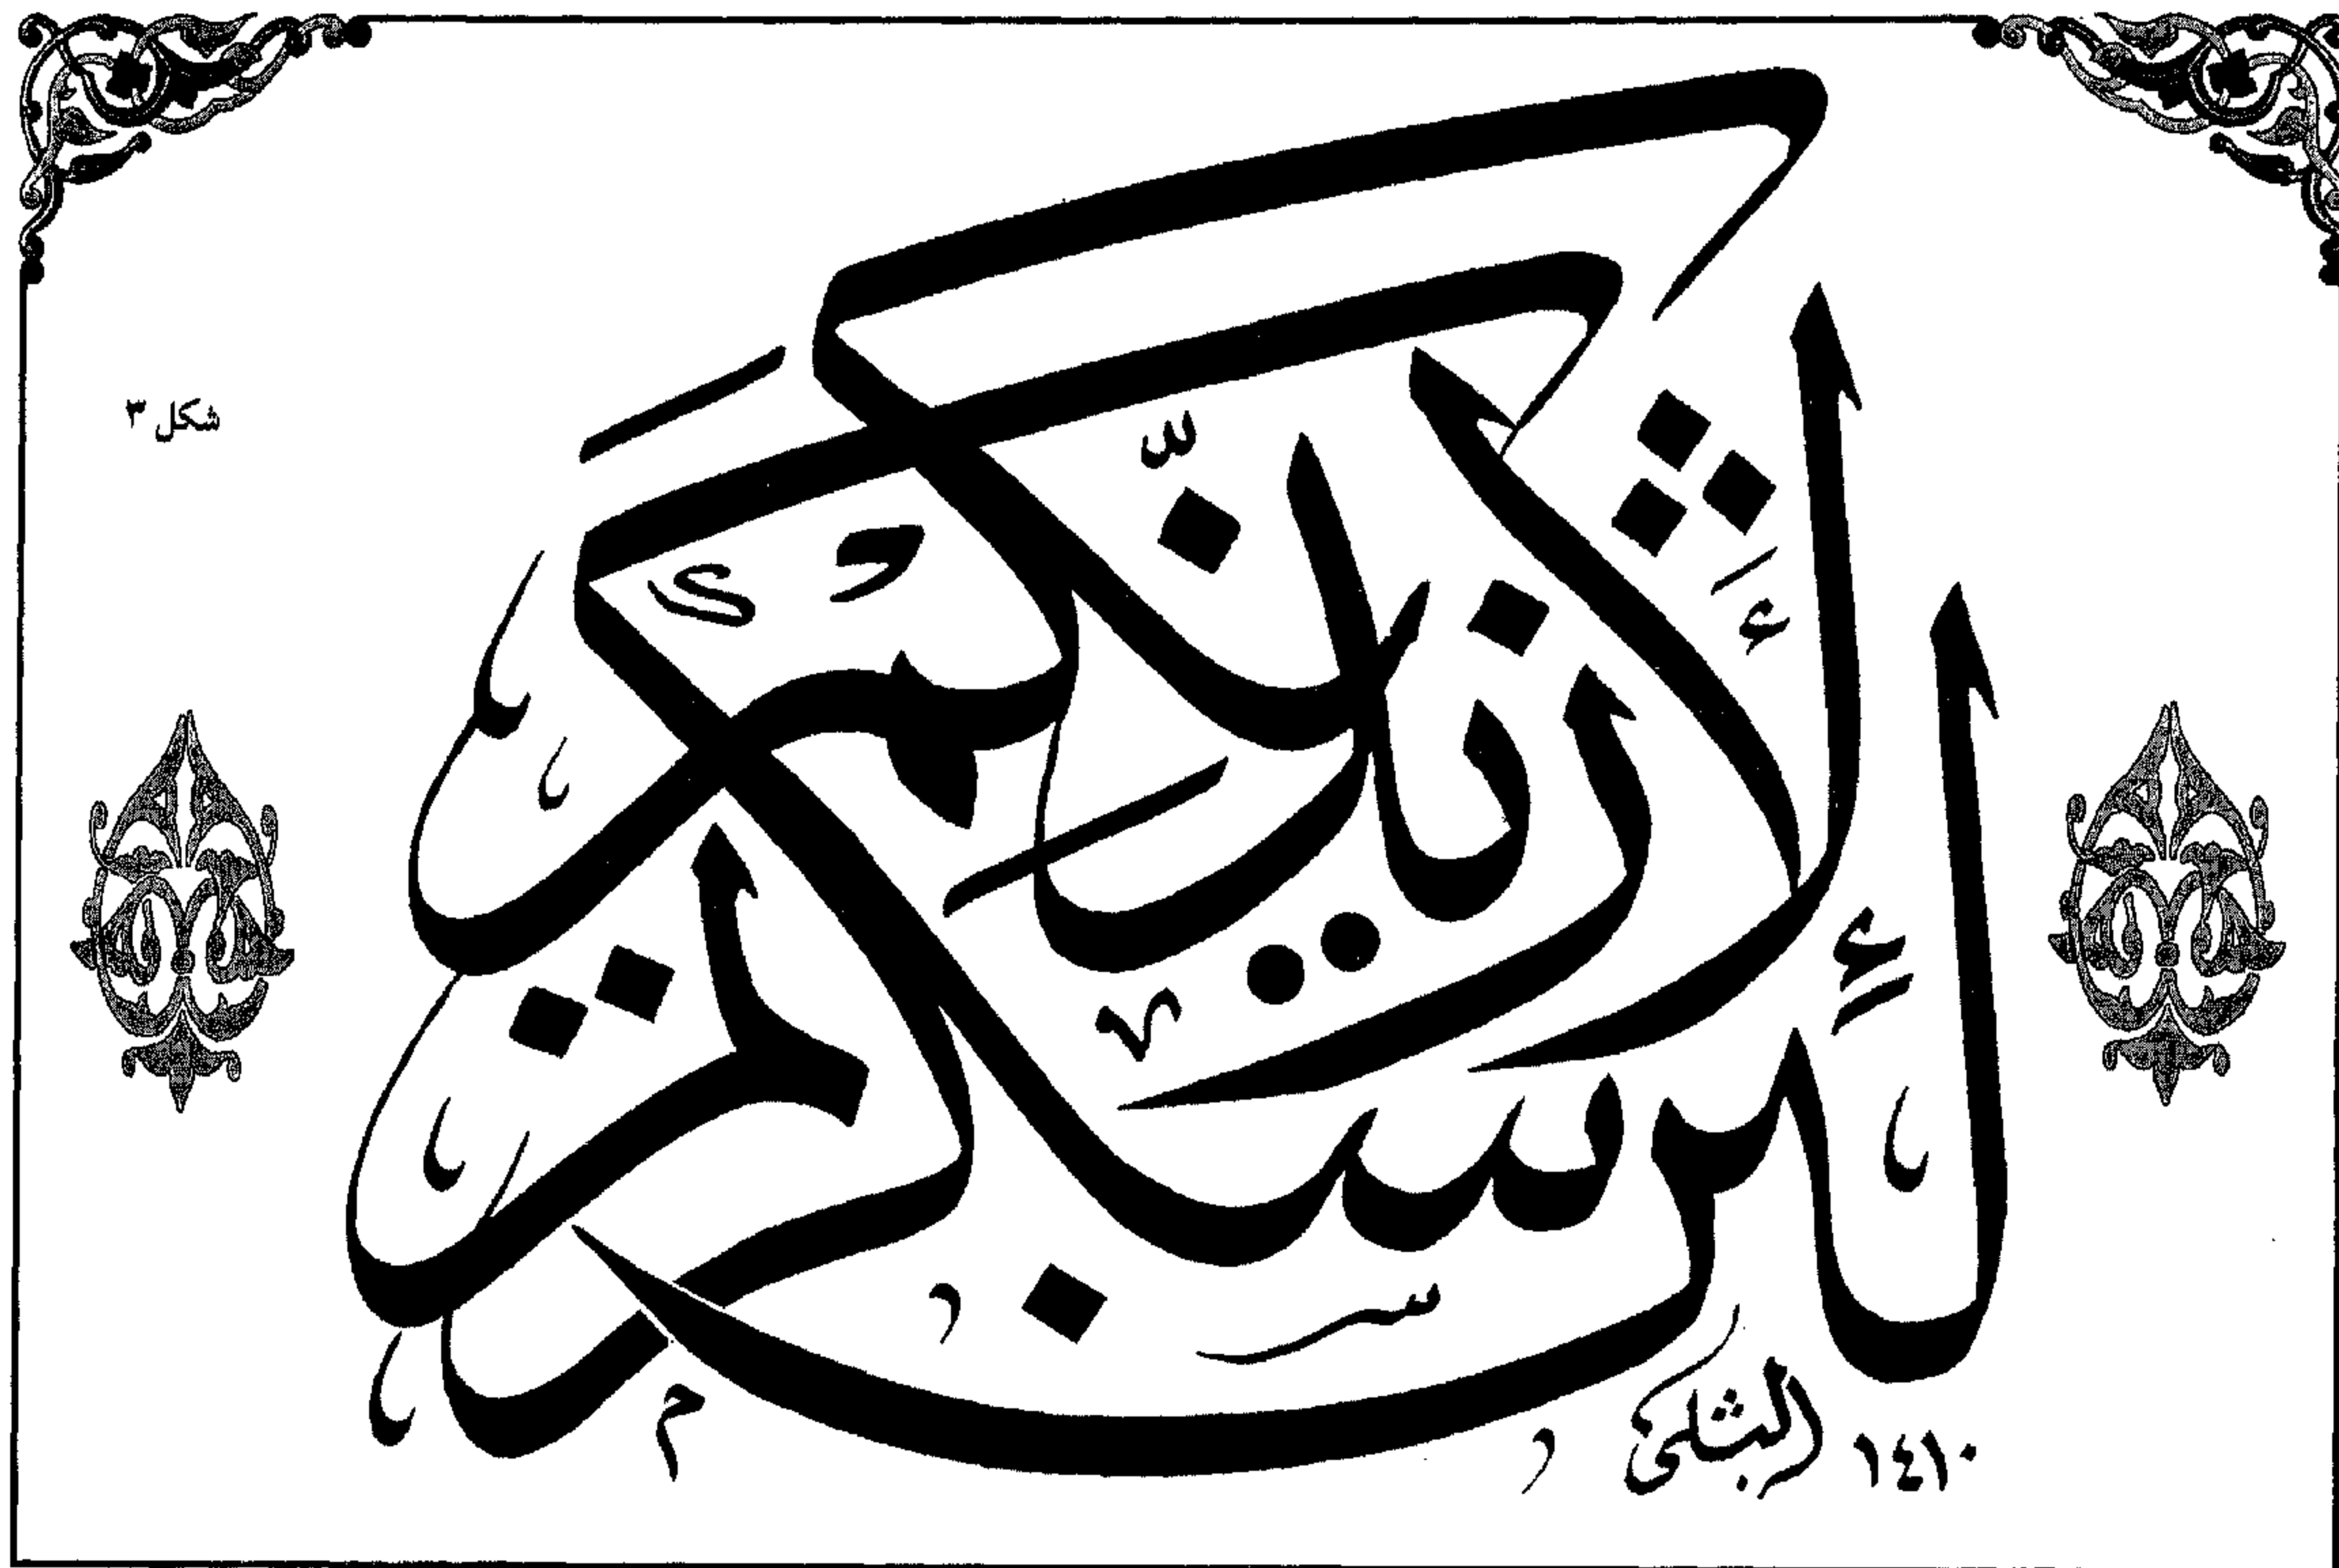 شكل ٣
لئن شكرتم لأزيدنكم
١٤١٠